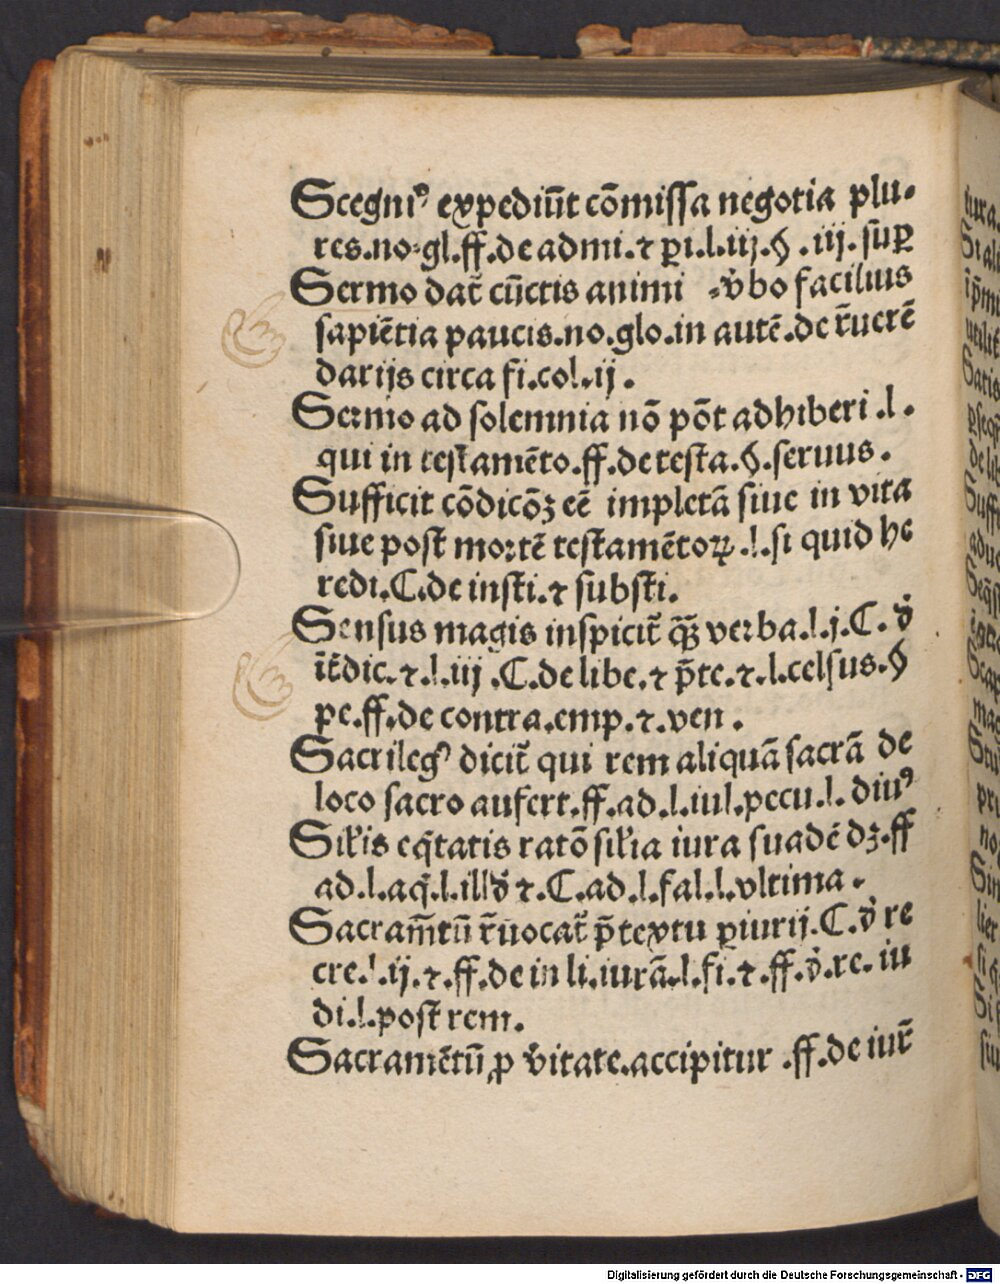 Scegniꝰ expediūt cōmissa negotia plu-
res.no.gl.ff.de admi.⁊ ꝑi.l.iij.§.iij.suꝑ
Sermo dat̄ cūctis animi v̓bo facilius
sapiētia paucis.no.glo.in autē.de r̄uerē
darijs circa fi.col.ij.
Sermo ad solemnia nō pōt adhiberi.l.
qui in testamēto.ff.de testa.§.seruus.
Sufficit cōdicōꝫ eē impletā siue in vita
siue post mortē testamētoꝝ.l.si quid he
redi.C.de insti.⁊ substi.
Sensus magis inspicit̄ qꝫ̄ verba.l.j.C.d̓
īt̄dic.⁊.l.iij.C.de libe.⁊ p̄te.⁊.l.celsus.§
pe.ff.de contra.emp.⁊.ven.
Sacrilegꝰ dicit̄ qui rem aliquā sacrā de
loco sacro aufert.ff.ad.l.iul.pecu.l.diuꝰ
Sił'is eq̄tatis ratō sił'ia iura suadē dꝫ.ff
ad.l.aq̄.l.illd̓ ⁊.C.ad.l.fal.l.vltima.
Sacram̄tū r̄uocat̄ p̄textu ꝑiurij.C.d̓ re
cre.l.ij.⁊.ff.de in li.iurā.l.fi.⁊.ff.d̓.re.iu
di.l.post rem.
Sacramētū ꝓ v̓itate.accipitur.ff.de iur̄
Digitalisierung gefördert durch die Deutsche Forschungsgemeinschaft - DFG